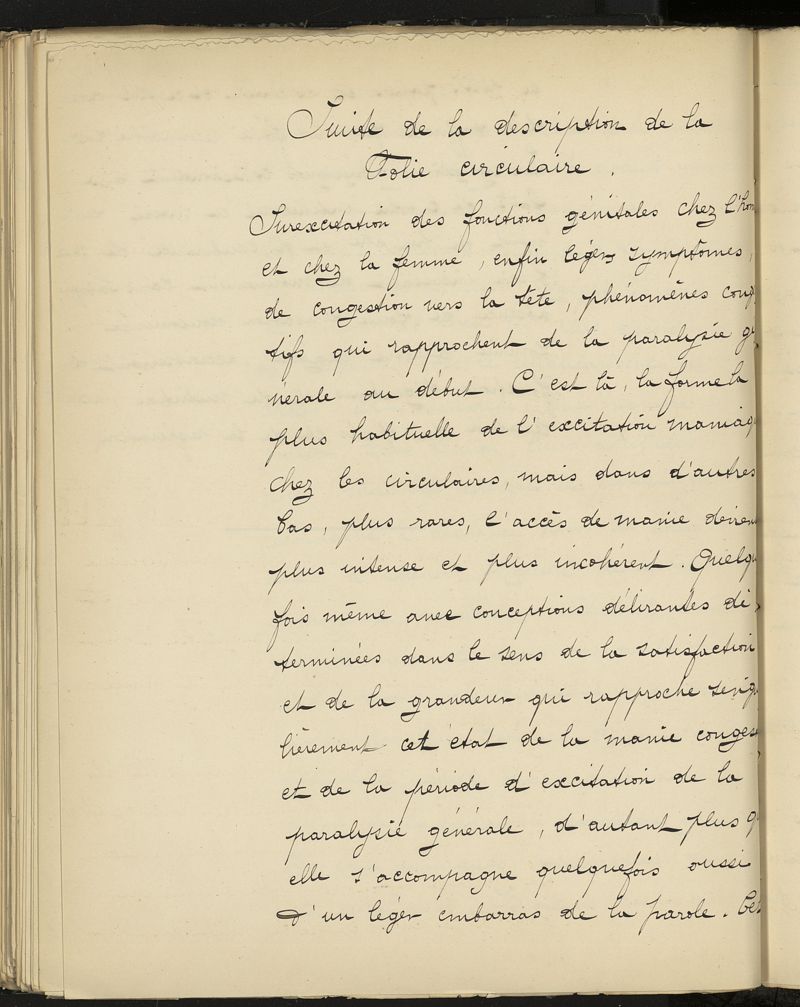 Suite de la description de la
Folie circulaire.
Surexcitation des fonctions génitales chez l'hom
et chez la femme, enfin légers symptômes,
de congestion vers la tête, phénomènes cong
tifs qui rapprochent de la paralysie gé
nérale au début. C'est là, la forme la
plus habituelle de l'excitation maniaq
chez les circulaires, mais dans d'autres
Cas, plus rares, l'accès de manie devien
plus intense et plus incohérent. Quelqu
fois même avec conceptions délirantes dé
terminées dans le sens de la satisfaction
et de la grandeur qui rapproche singu
lièrement cet état de la manie conges
et de la période d'excitation de la
paralysie générale, d'autant plus qu
elle s'accompagne quelquefois aussi
d'un léger embarras de la parole. Cet